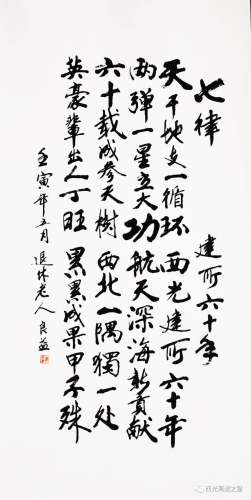 七律 建所六十年
天干地支一循环 西光建所六十年
两弹一星立大功 航天深海新贡献
六十载成参天樹 西北一隅獨一处
英豪輩出人丁旺 累累成果甲子殊
壬寅年五月 退休老人 良益
西光离退之窗